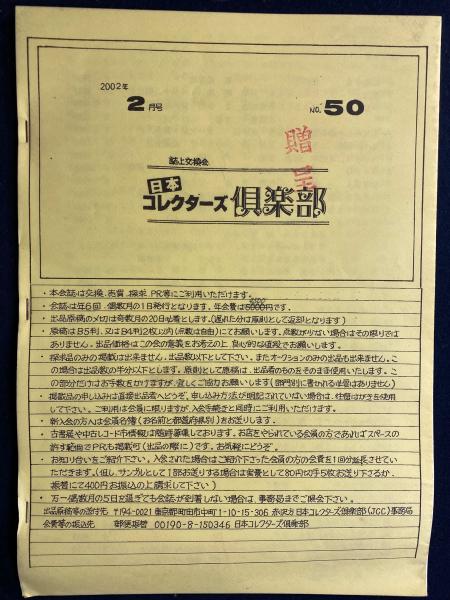 2002年
2月号
NO. 50
贈呈
誌上交換会
日本
コレクターズ 倶楽部
・本会誌は交換、売買、探求、PR等にご利用いただけます。
・会誌は年6回、偶数月の1日発行となります。年会費は5000円です。
・出品原稿のメ切は奇数月の20日必着とします。(遅れた分は原則として返却となります)
・原稿はB5判、又はB4判2枚以内(点数は自由)にてお願いします。点数が少ない場合はその限りでは
ありません。出品価格はこの会の意義をお考えの上、良心的な値段でお願いします。
・探求品のみの掲載は出来ません。出品数以下として下さい。またオークションのみの出品も出来ません。こ
の場合は出品数の半分以下とします。原則として原稿は、出品者のものをそのまま使用いたします。こ
の部分だけはお手数をかけますが、宜しくご協力お願いします(部門別に書かれる必要はありません)
・掲載品の申し込みは直接出品者へどうぞ。申し込み方法が明記されていない場合は、往復はがきを使用
して下さい。ご利用は会員に限りますが、入会手続きと同時にご利用になれます。
・新入会の方へは会員名簿(お名前と都道府県別)をお送りします。
・古書展や中古レコード市情報は随時募集しております。お店をやられている会員の方であればスペースの
許す範囲でPRも掲載可(出品の際に)です。お気軽にどうぞ。
・お知り合いをご紹介下さい。入会された場合はご紹介下さった会員の方の会費を1回分延長させてい
ただきます。(但し、サンプルとして1部お送りする場合は実費として80円切手5枚お送り下さるか、
振替にて400円お振込の上請求して下さい)
・万一偶数月の5日を過ぎても会誌が到着しない場合は、事務局までご一報下さい。
出品原稿等の送付先 〒194-0021 東京都町田市中町1-10-15-306 赤沢方 日本コレクターズ倶楽部(JCC)事務局
会費等の振込先 郵便振替 00190-8-150346 日本コレクターズ倶楽部